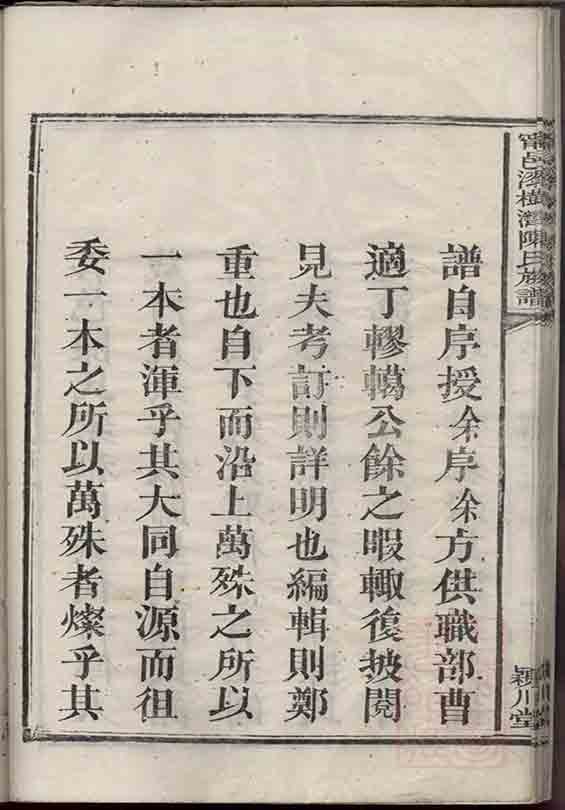 甯邑深樹灣陳氏族譜
潁川堂
譜自序授余序余方供職部曹
適丁轇轕公餘之暇輙復披閱
見夫考訂則詳明也編輯則鄭
重也自下而沿上萬殊之所以
一本者渾乎其大同自源而徂
委一本之所以萬殊者燦乎其